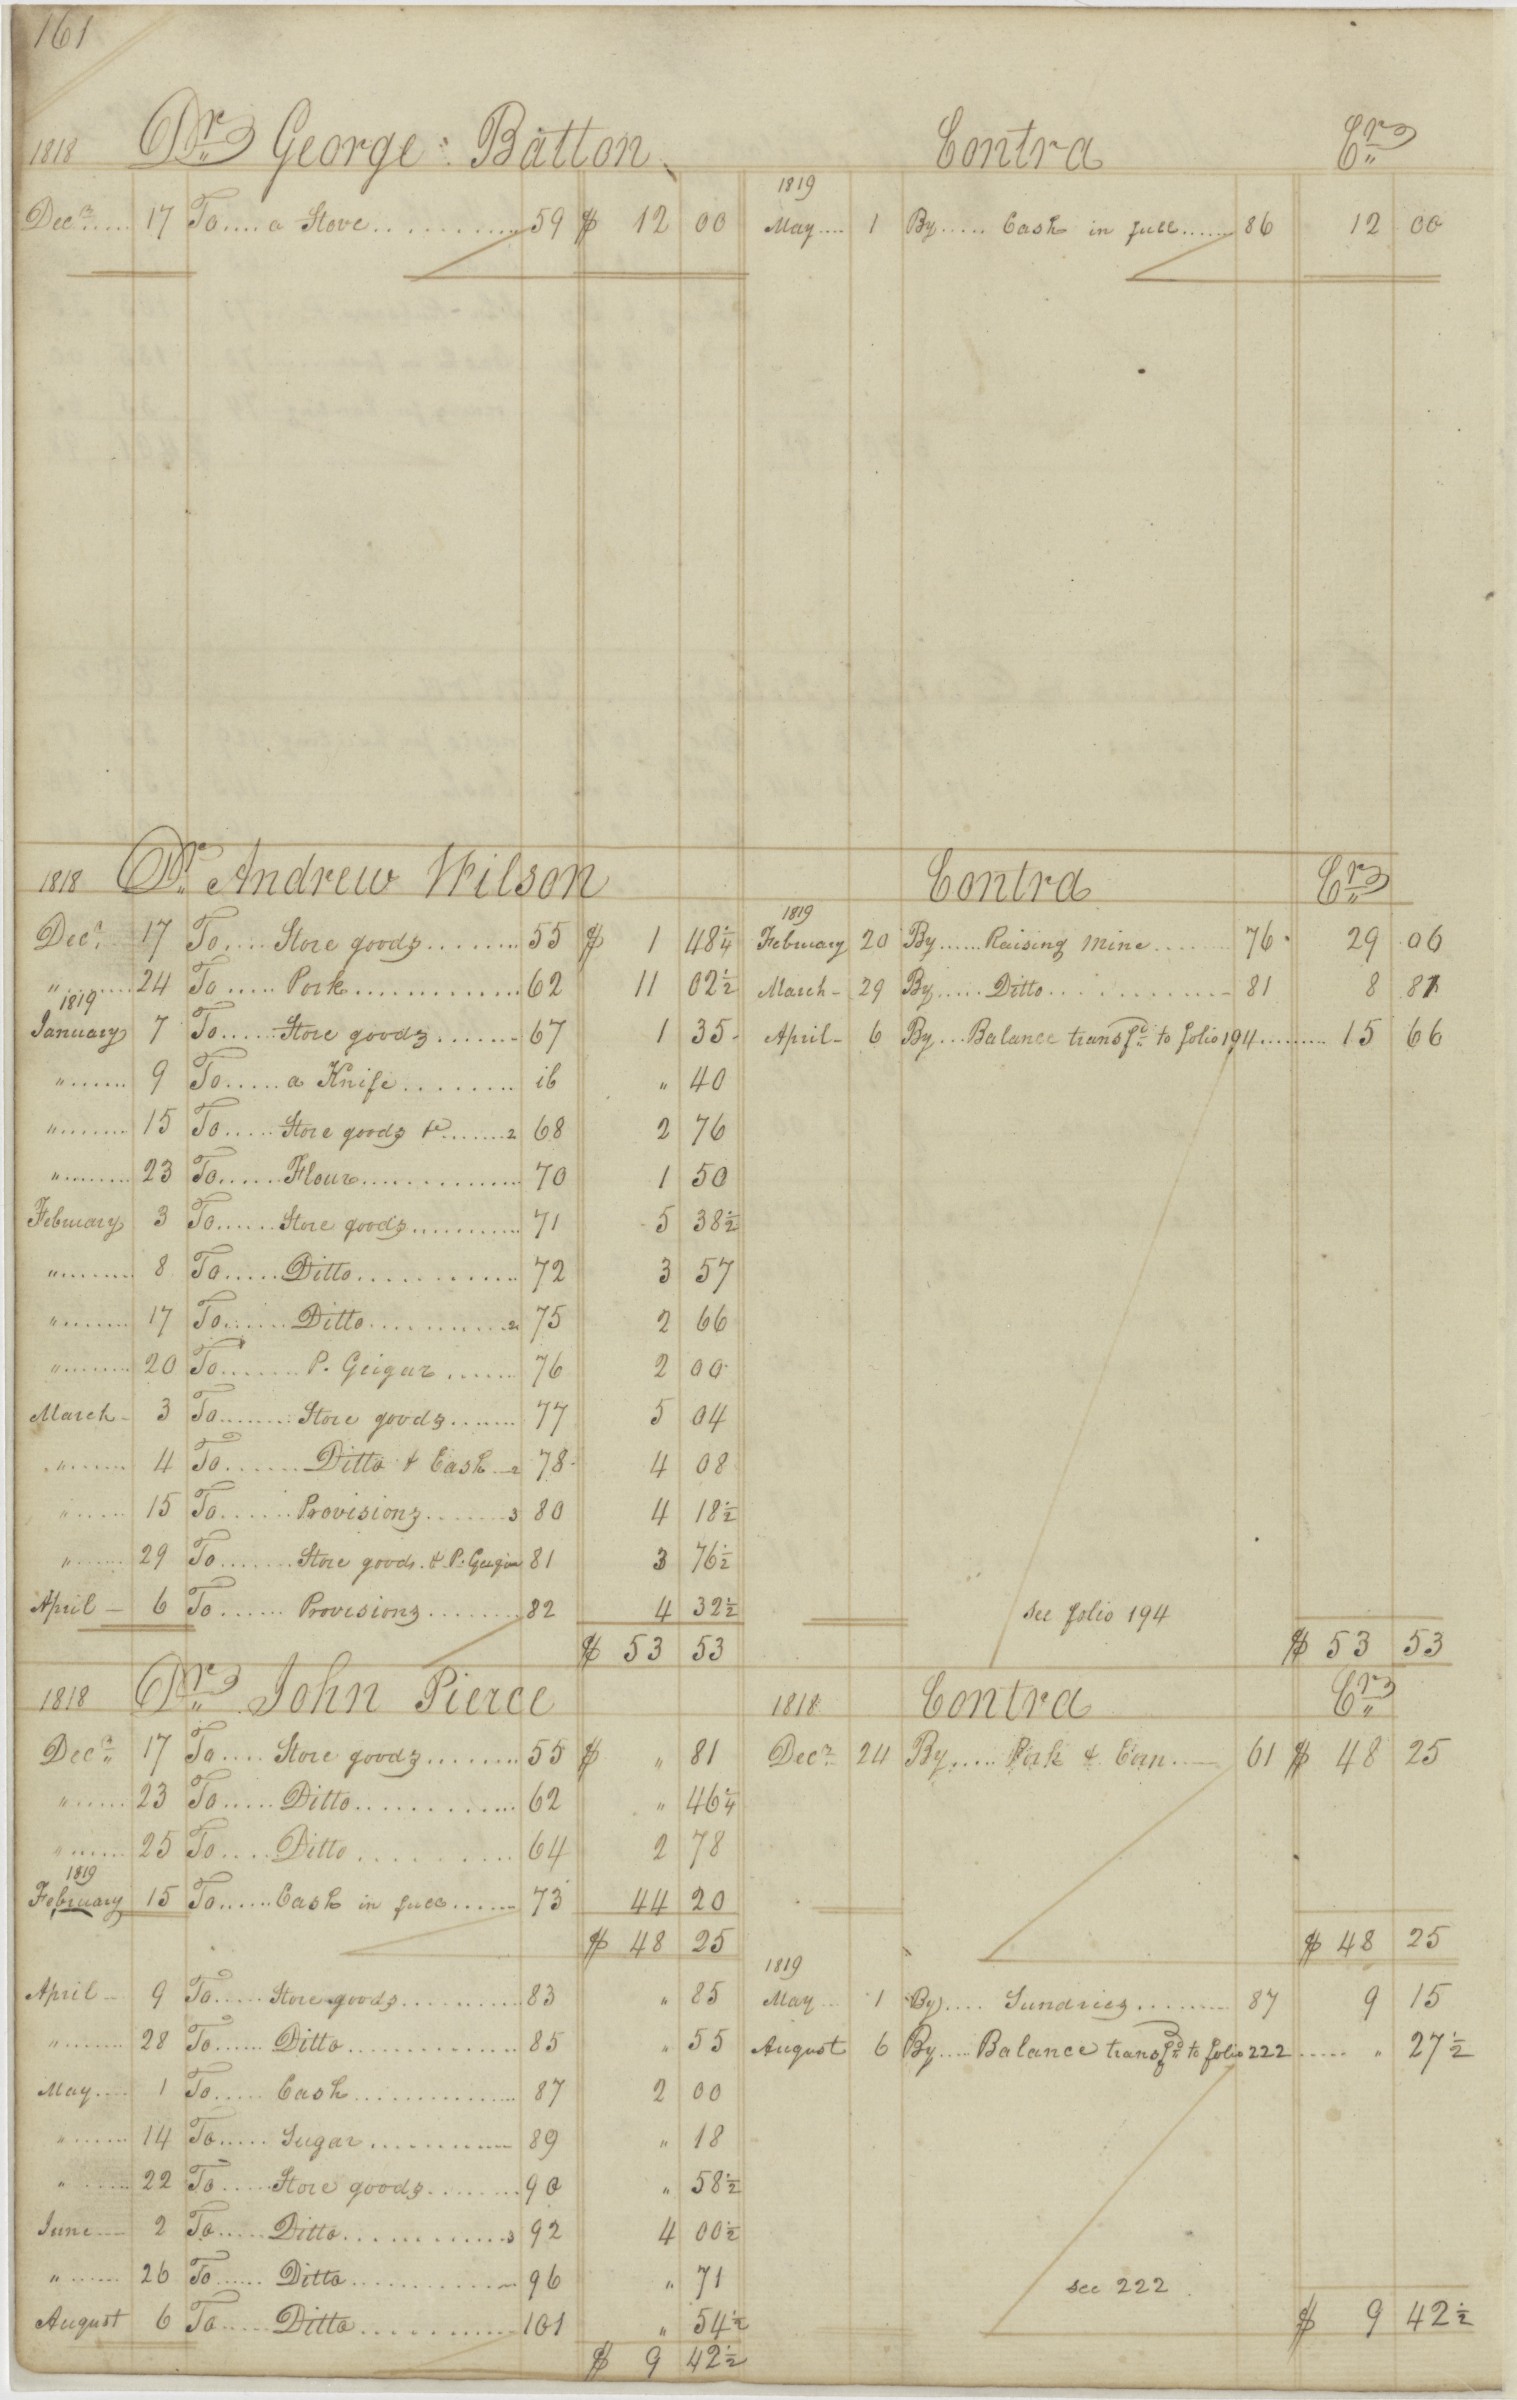 161
1818 Dr George Batton Contra Cr
1819
Decr 17 To a Stove 59 $ 12 00 May 1 By Cash in full 86 12 00
1818 Dr Andrew Wilson Contra Cr
1819
Decr 17 To Store goods 55 $ 1 48¼ February 20 By Raising Mine 76 29 00
" 24 To Pork 62 11 02½ March 29 By Ditto 81 8 87
1819
January 7 To Store goods 67 1 35 April 6 By Balance transfd to folio 194 15 66
" 9 To a Knife ib " 40
" 15 To Store goods &c 2 68 2 76
" 23 To Flour 70 1 50
February 3 To Store goods 71 5 38½
" 8 To Ditto 72 3 57
" 17 To Ditto 2 75 2 66
" 20 To P. Geigar 76 2 00
March 3 To Store goods 77 5 04
" 4 To Ditto & Cash 2 78 4 08
" 15 To Provisions 3 80 4 18½
" 29 To Store goods & P. Geigar 81 3 76½
April 6 To Provisions 82 4 32½ see folio 194
$ 53 53 $ 53 53
1818 Dr John Pierce 1818 Contra Cr
Decr 17 To Store goods 55 $ " 81 Decr 24 By Pork & 61 $ 48 25
" 23 To Ditto 62 " 46¼
" 25 To Ditto 64 2 78
1819
February 15 To Cash in full 73 44 20
$ 48 25 $ 48 25
1819
April 9 To Store goods 83 " 85 May 1 By Sundries 87 9 15
" 28 To Ditto 85 " 55 August 6 By Balance transfd to folio 222 " 27½
May 1 To Cash 87 2 00
" 14 To Sugar 89 " 18
" 22 To Store goods 90 " 58½
June 2 To Ditto 3 92 4 00½
" 26 To Ditto 96 " 71 see 222
August 6 To Ditto 101 " 54½ $ 9 42½
$ 9 42½